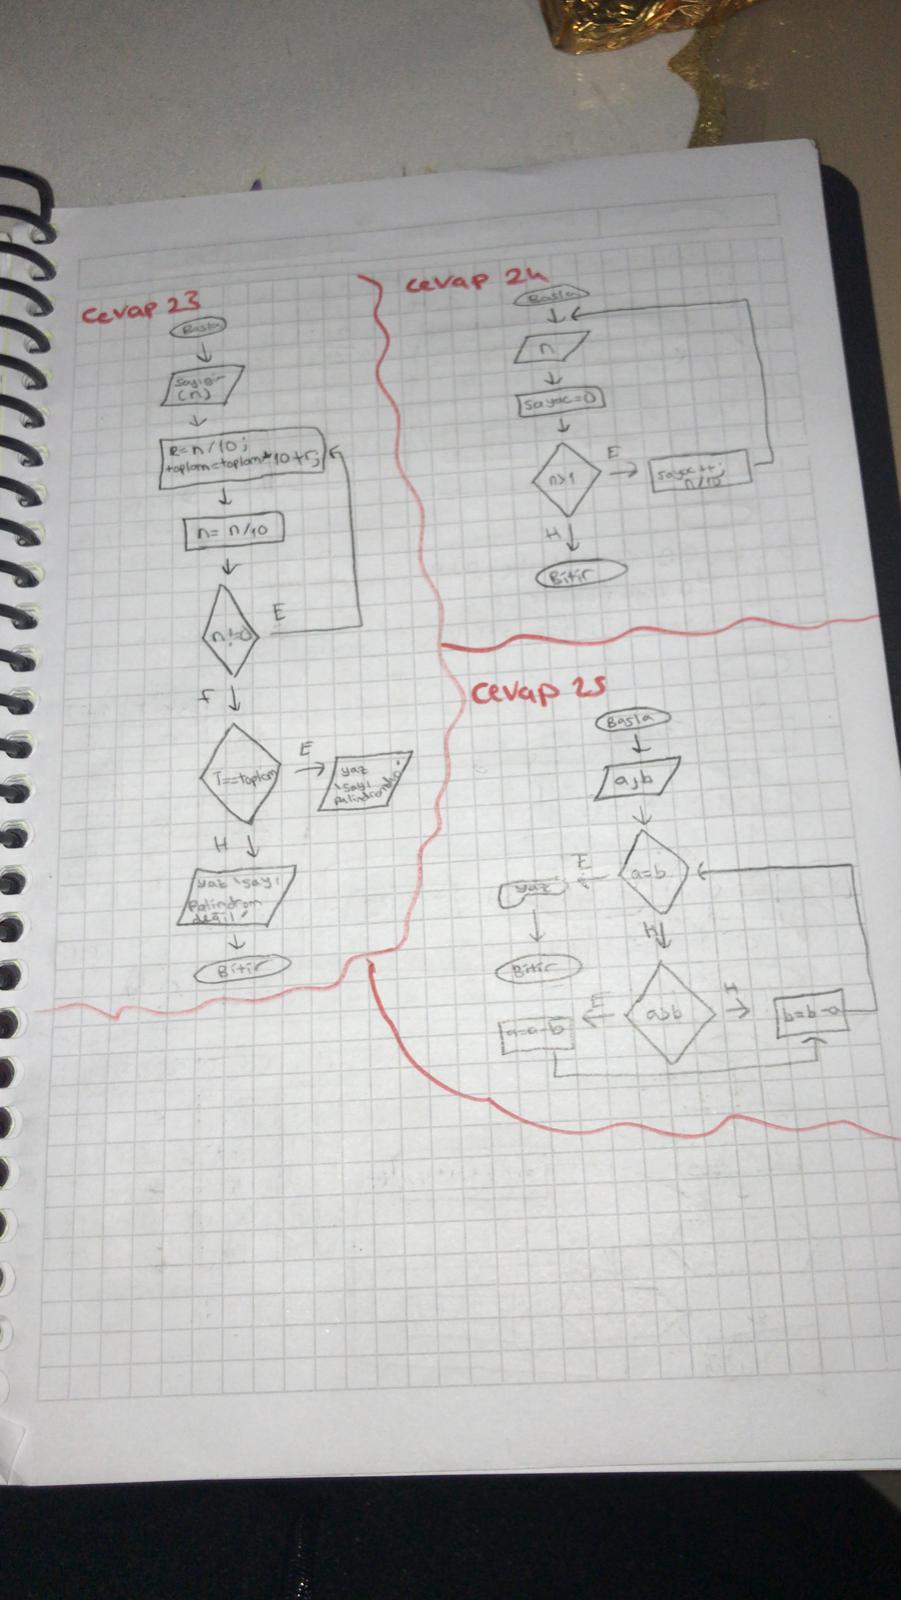 Cevap 23
Basla
sayı gir
(n)
R=n/10;
toplam=toplam*10+r;
n= n/10
n!=0
E
T==toplam
E
yaz
'sayı
palindromdur'
H
yaz 'sayı
Palindrom
değil'
Bitir
Cevap 24
Basla
n
sayac=0
n>1
E
sayac++;
n/10
H
Bitir
Cevap 25
Basla
a,b
a=b
E
yaz
Bitir
H
a>b
E
a=a-b
H
b=b-a